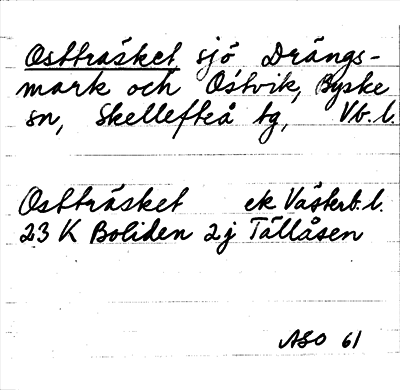 Ostträsket sjö Drängs-
mark och Östvik, Byske
sn, Skellefteå tg, Vb. l.
Ostträsket ek Västerb. l.
23 K Boliden 2j Tällåsen
ASO 61